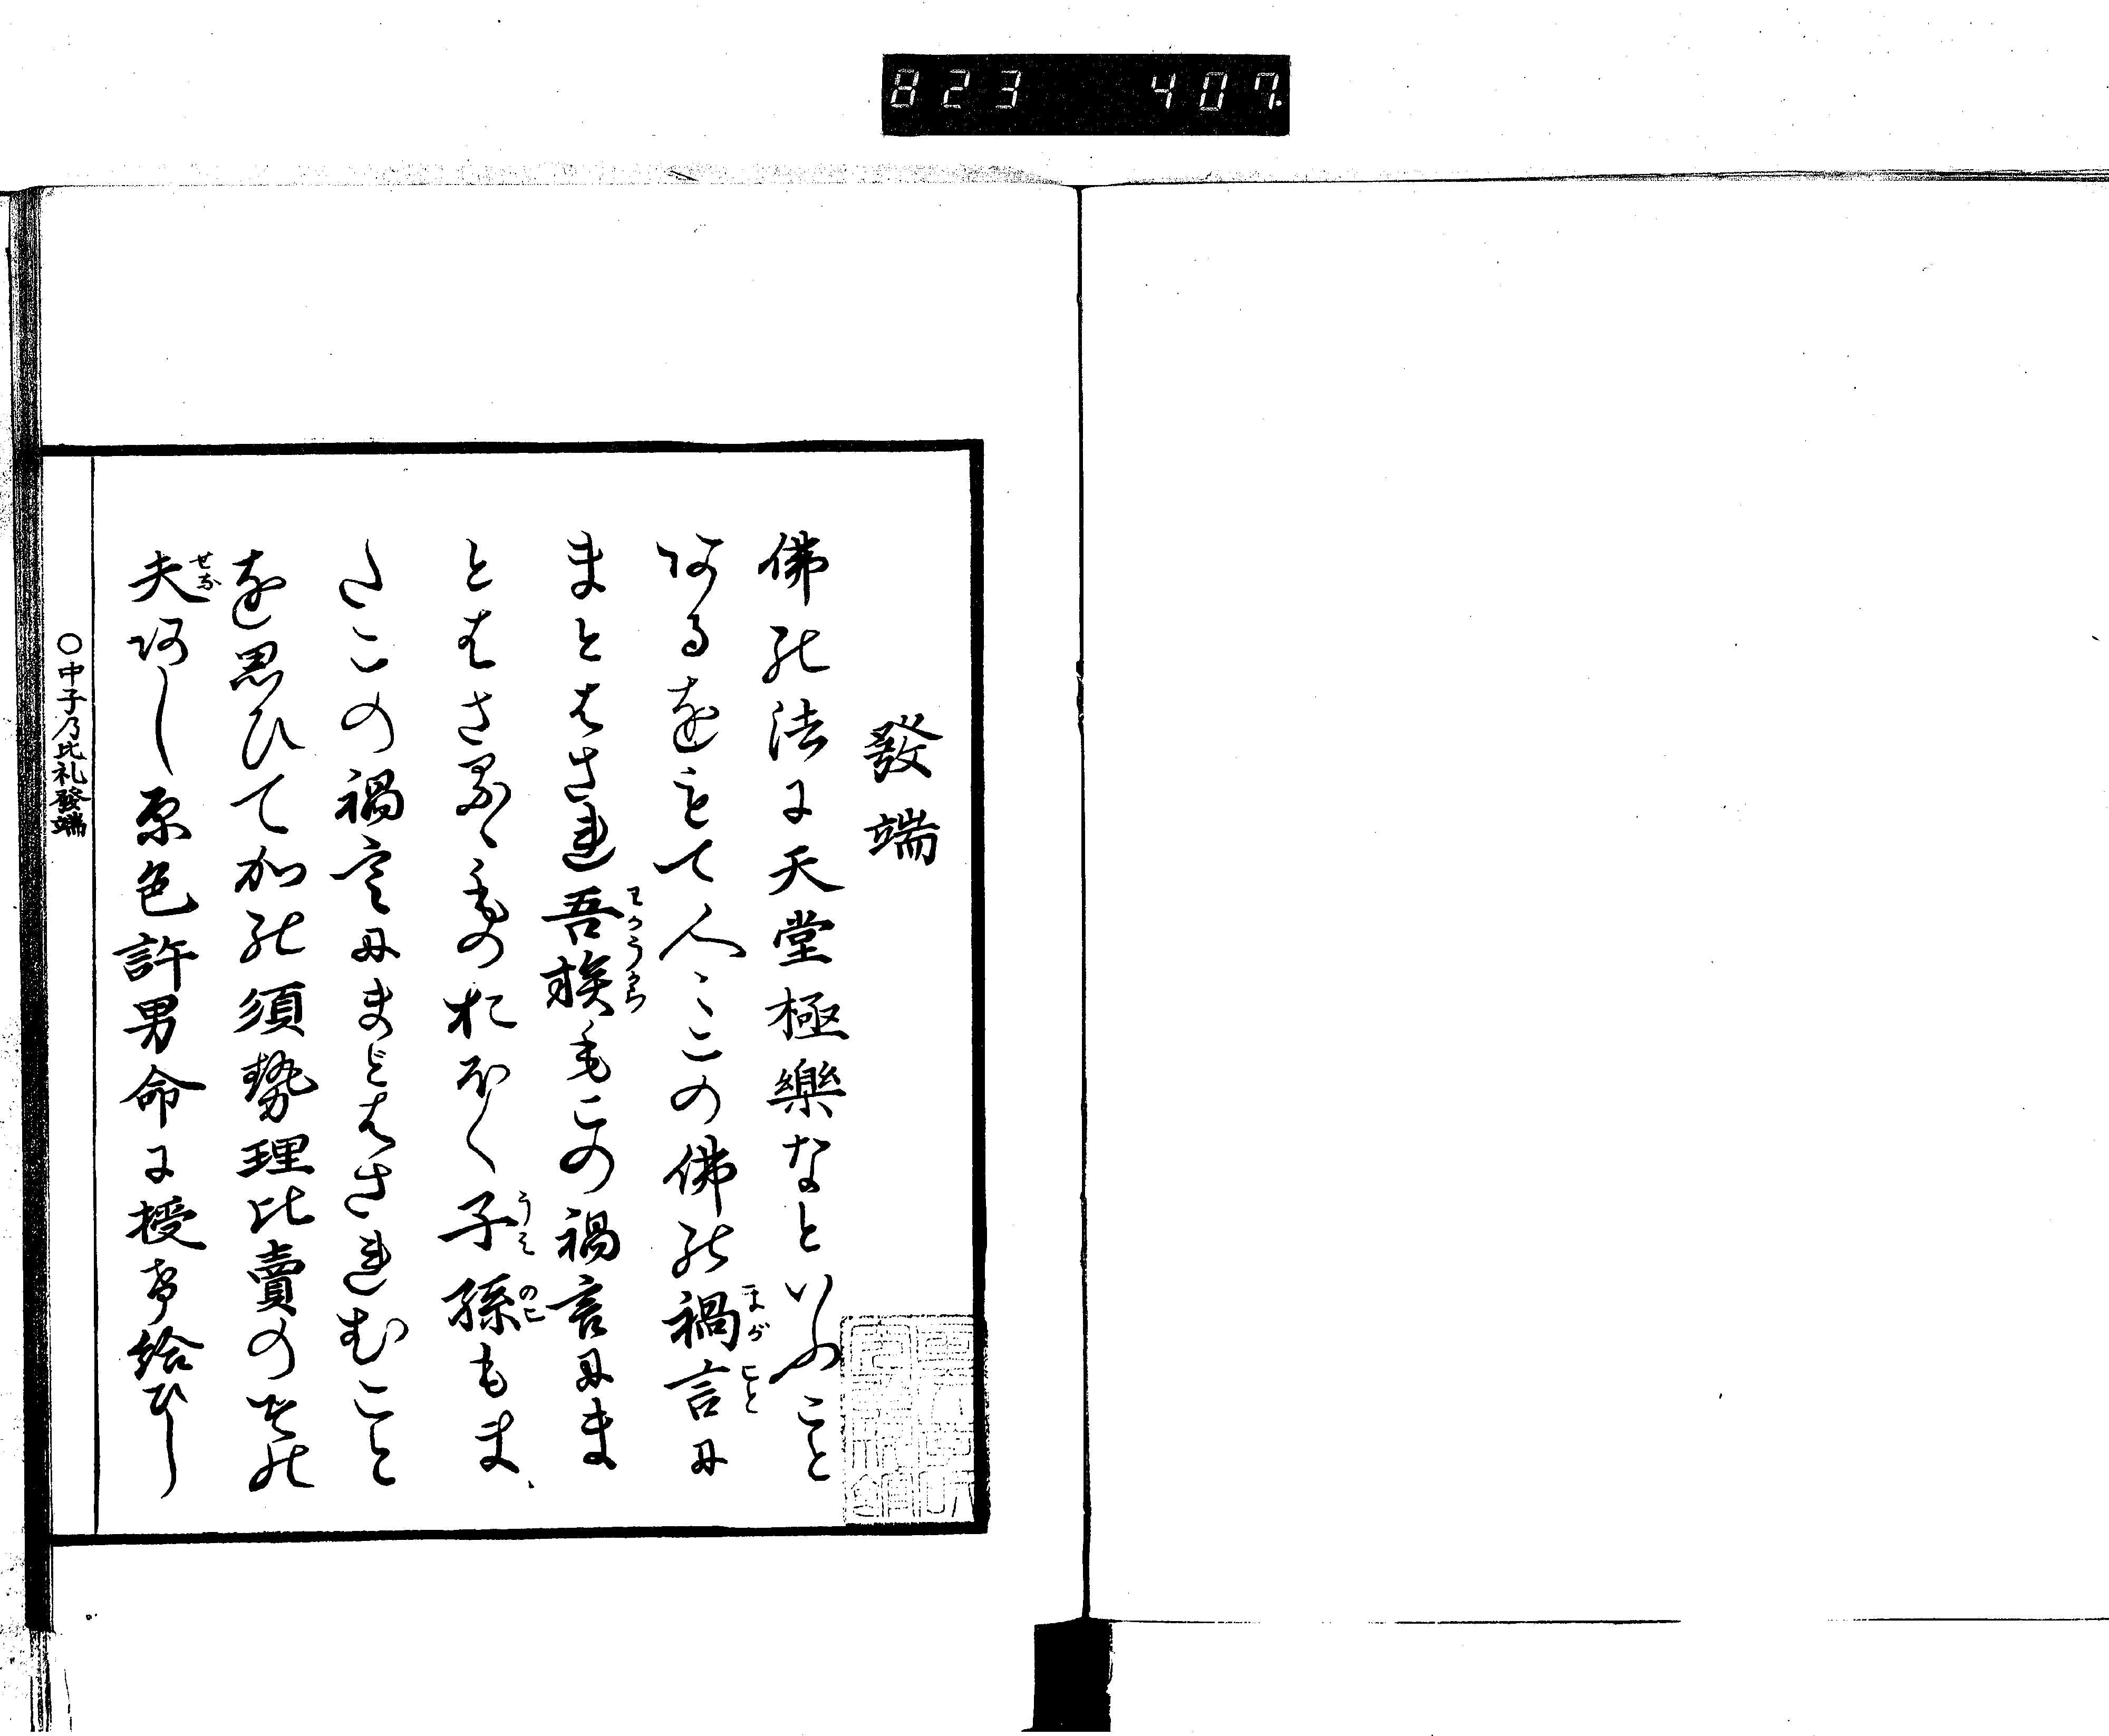 823 407
發端
佛能法に天堂極樂なといふこと
阿るをもて人ミこの佛能禍言に
まとはされ吾族毛この禍言にま
とはさるゝ毛の於ほく子孫もま
たこの禍言にまどはされむこと
を思ひて加能須勢理比賣のその
夫阿し原色許男命に授け給ひし
まがごと
わがうから
うミのこ
せな
○中子乃比礼發端